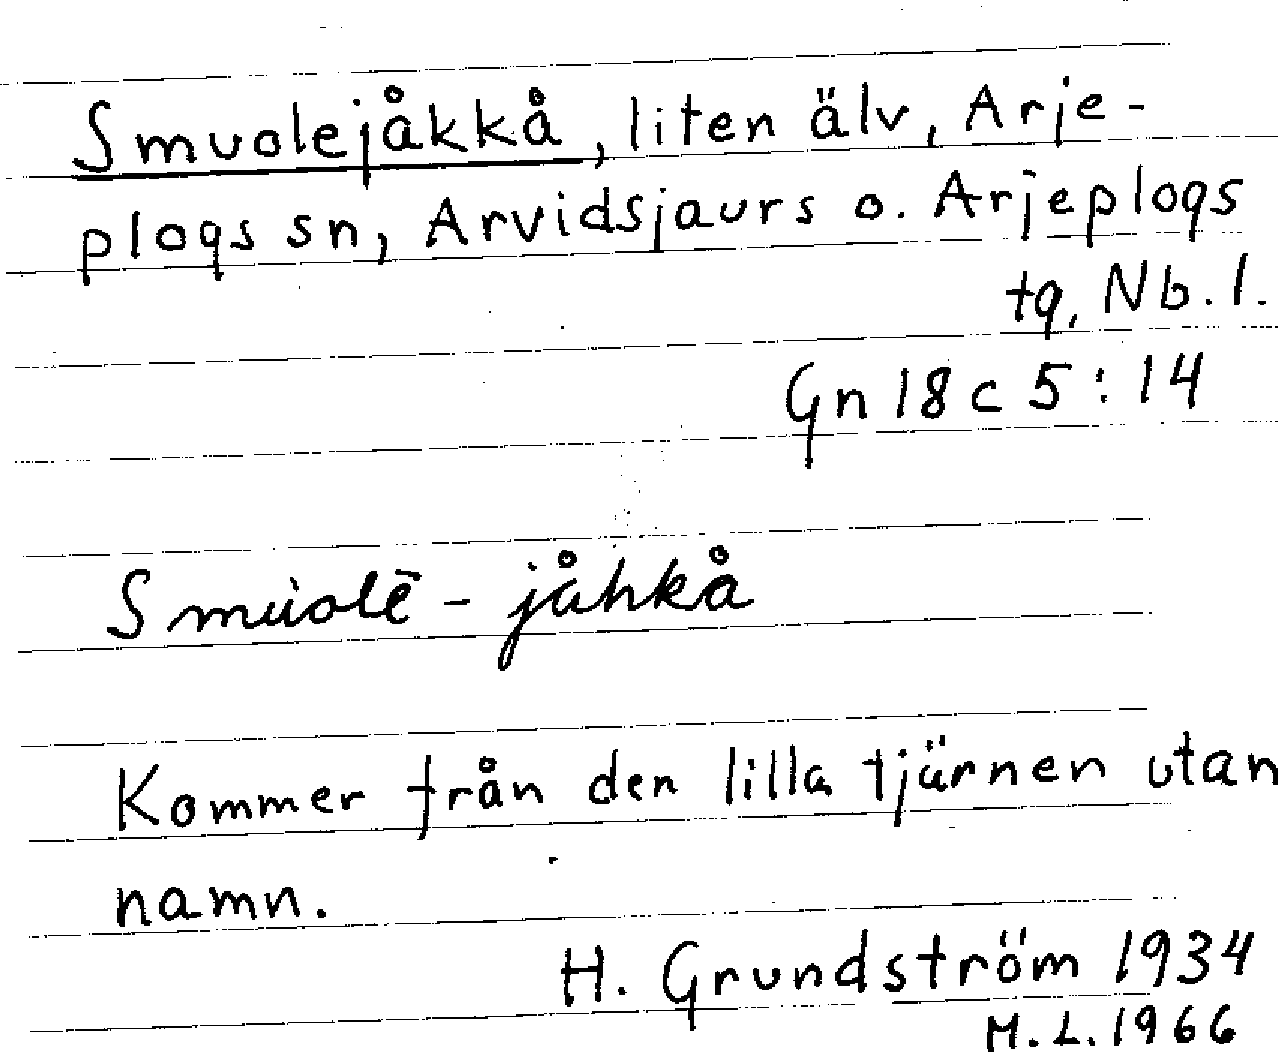 Smuolejåkkå, liten älv, Arje-
plogs sn, Arvidsjaurs o. Arjeplogs
tg, Nb. l.
Gn 18 c 5 : 14
Smùolē - jåhkå
Kommer från den lilla tjärnen utan
namn.
H. Grundström 1934
M. L. 1966